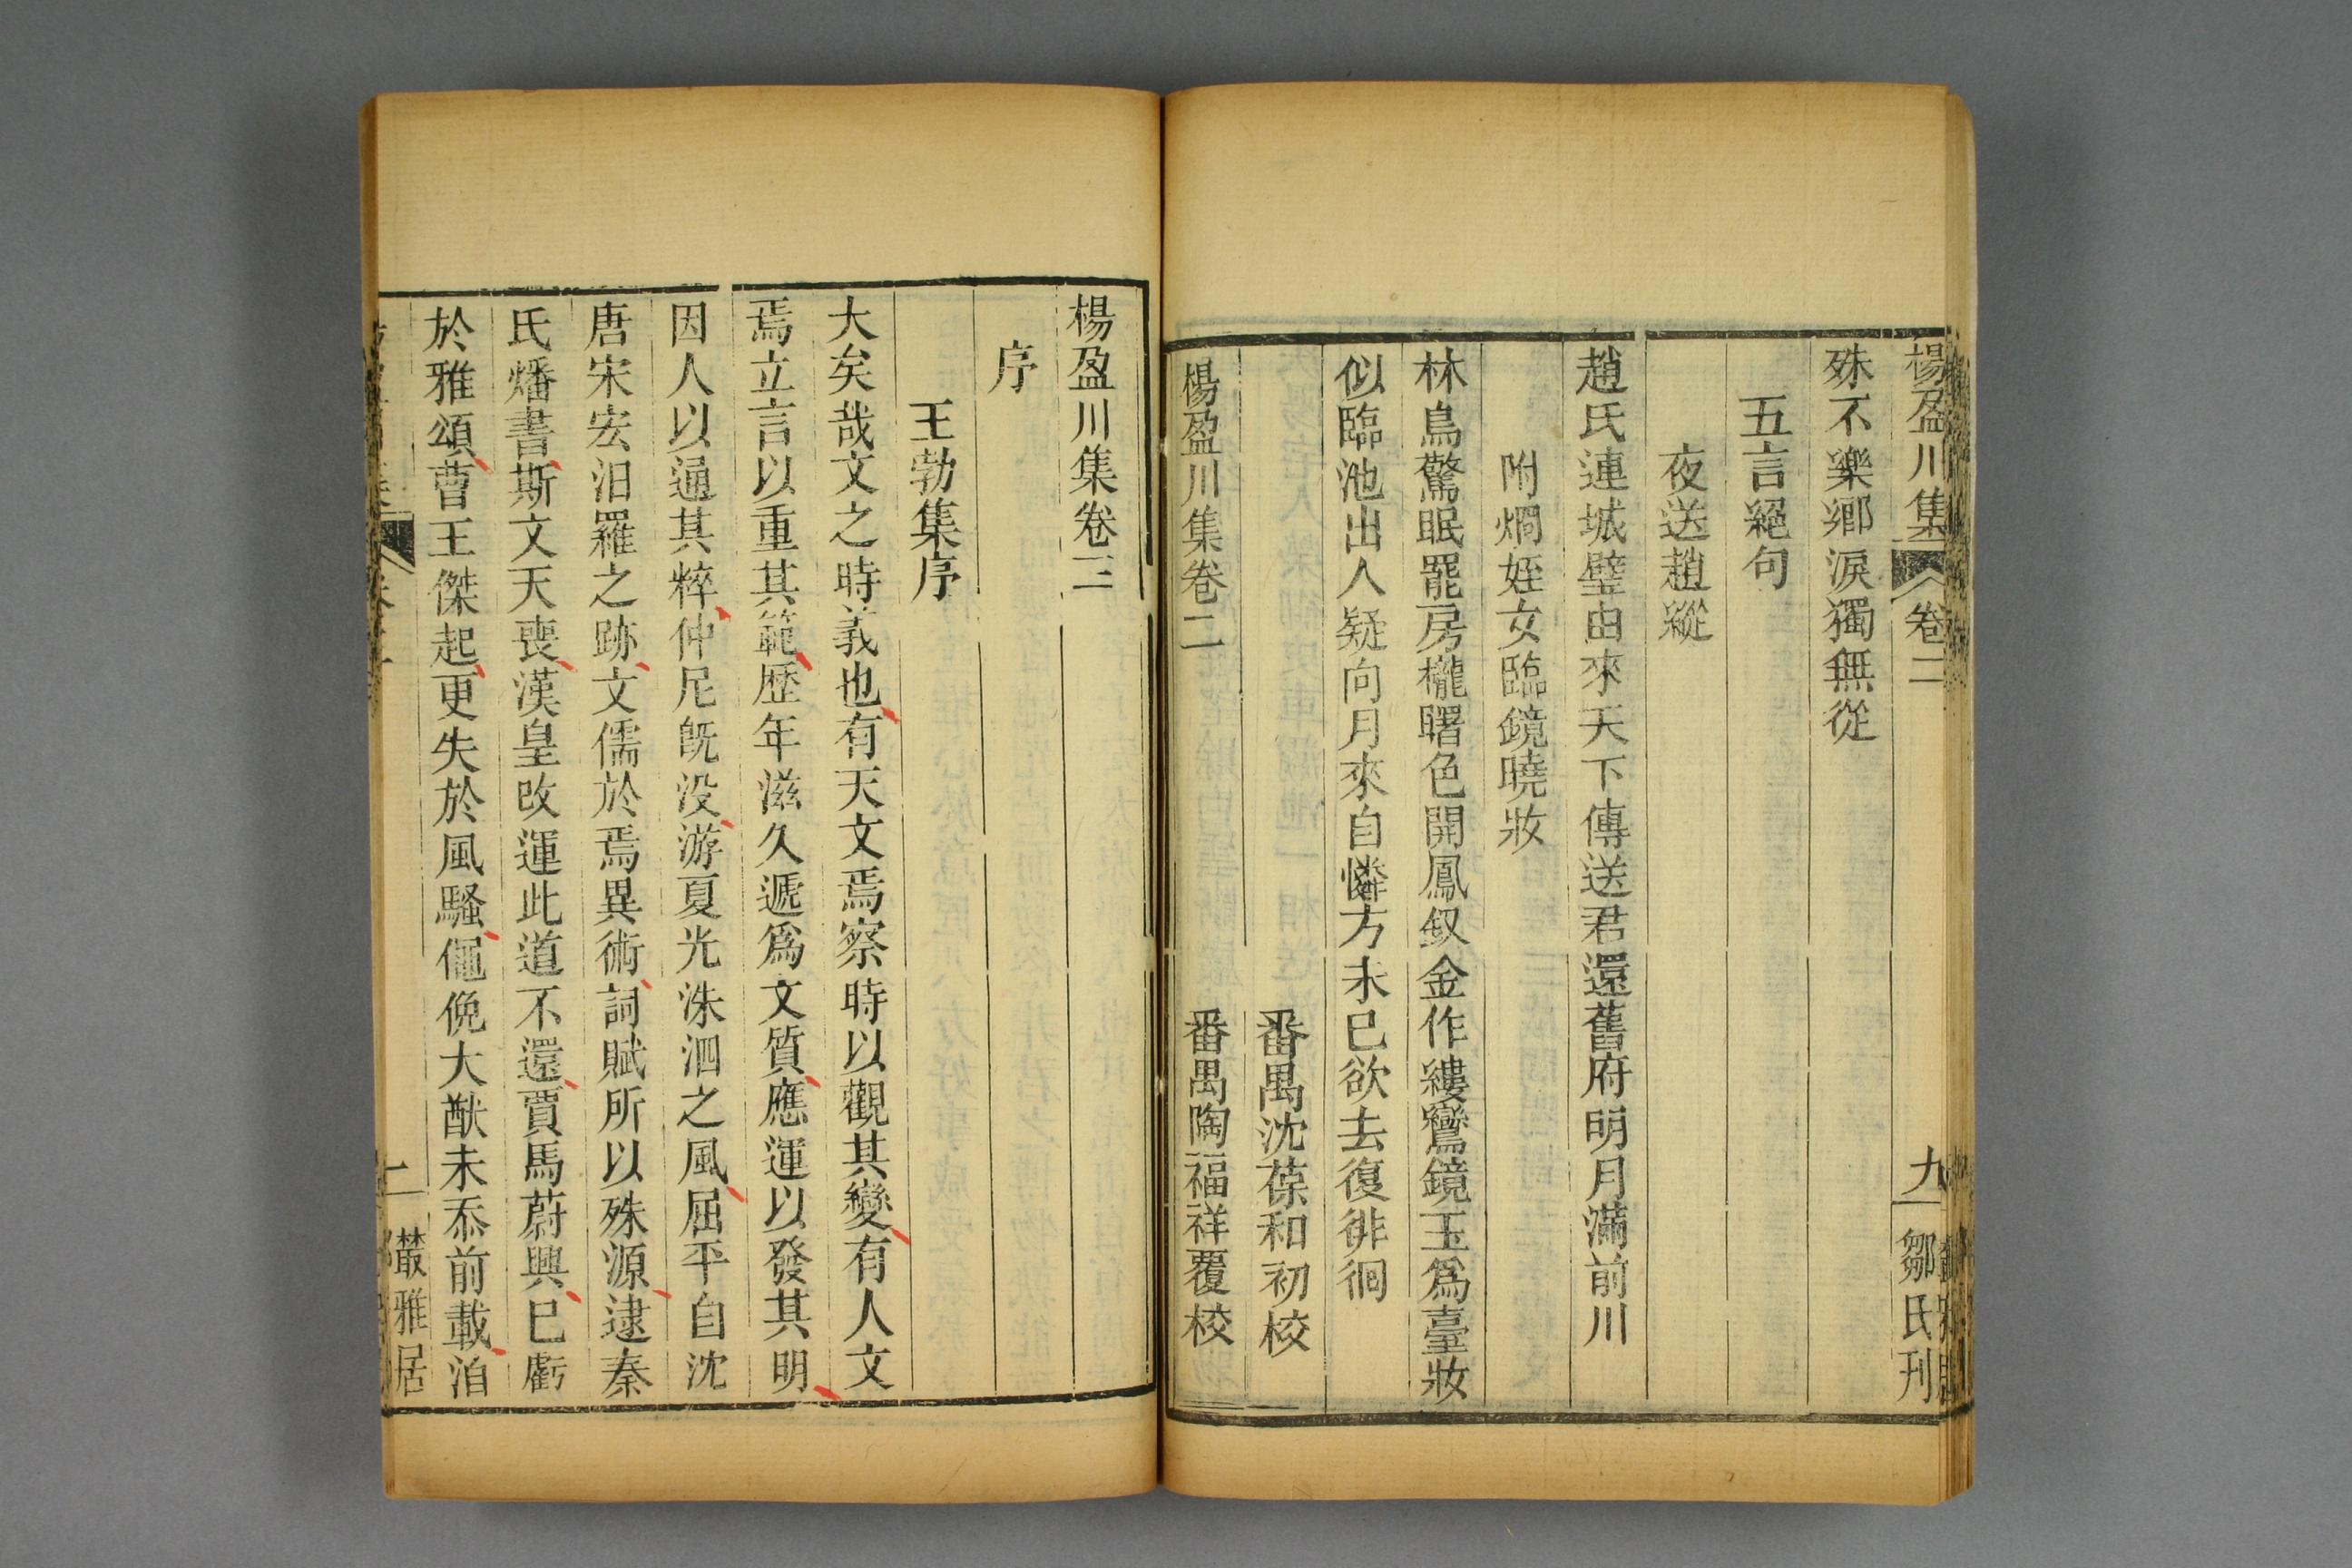 楊盈川集 卷二 九 鄒氏刊
殊不樂鄉淚獨無從
五言絕句
夜送趙縱
趙氏連城璧由來天下傳送君還舊府明月滿前川
附烱姪女臨鏡曉妝
林鳥驚眠罷房櫳曙色開鳳釵金作縷鸞鏡玉爲臺妝
似臨池出人疑向月來自憐方未已欲去復徘徊
番禺沈葆和初校
楊盈川集卷二 番禺陶福祥覆校
楊盈川集卷三
序
王勃集序
大矣哉文之時義也有天文焉察時以觀其變有人文
焉立言以重其範歷年滋久遞爲文質應運以發其明
因人以通其粹仲尼旣没游夏光洙泗之風屈平自沈
唐宋宏汨羅之跡文儒於焉異術詞賦所以殊源逮秦
氏燔書斯文天喪漢皇改運此道不還賈馬蔚興已虧
於雅頌曹王傑起更失於風騷僶俛大猷未忝前載洎
一 叢雅居